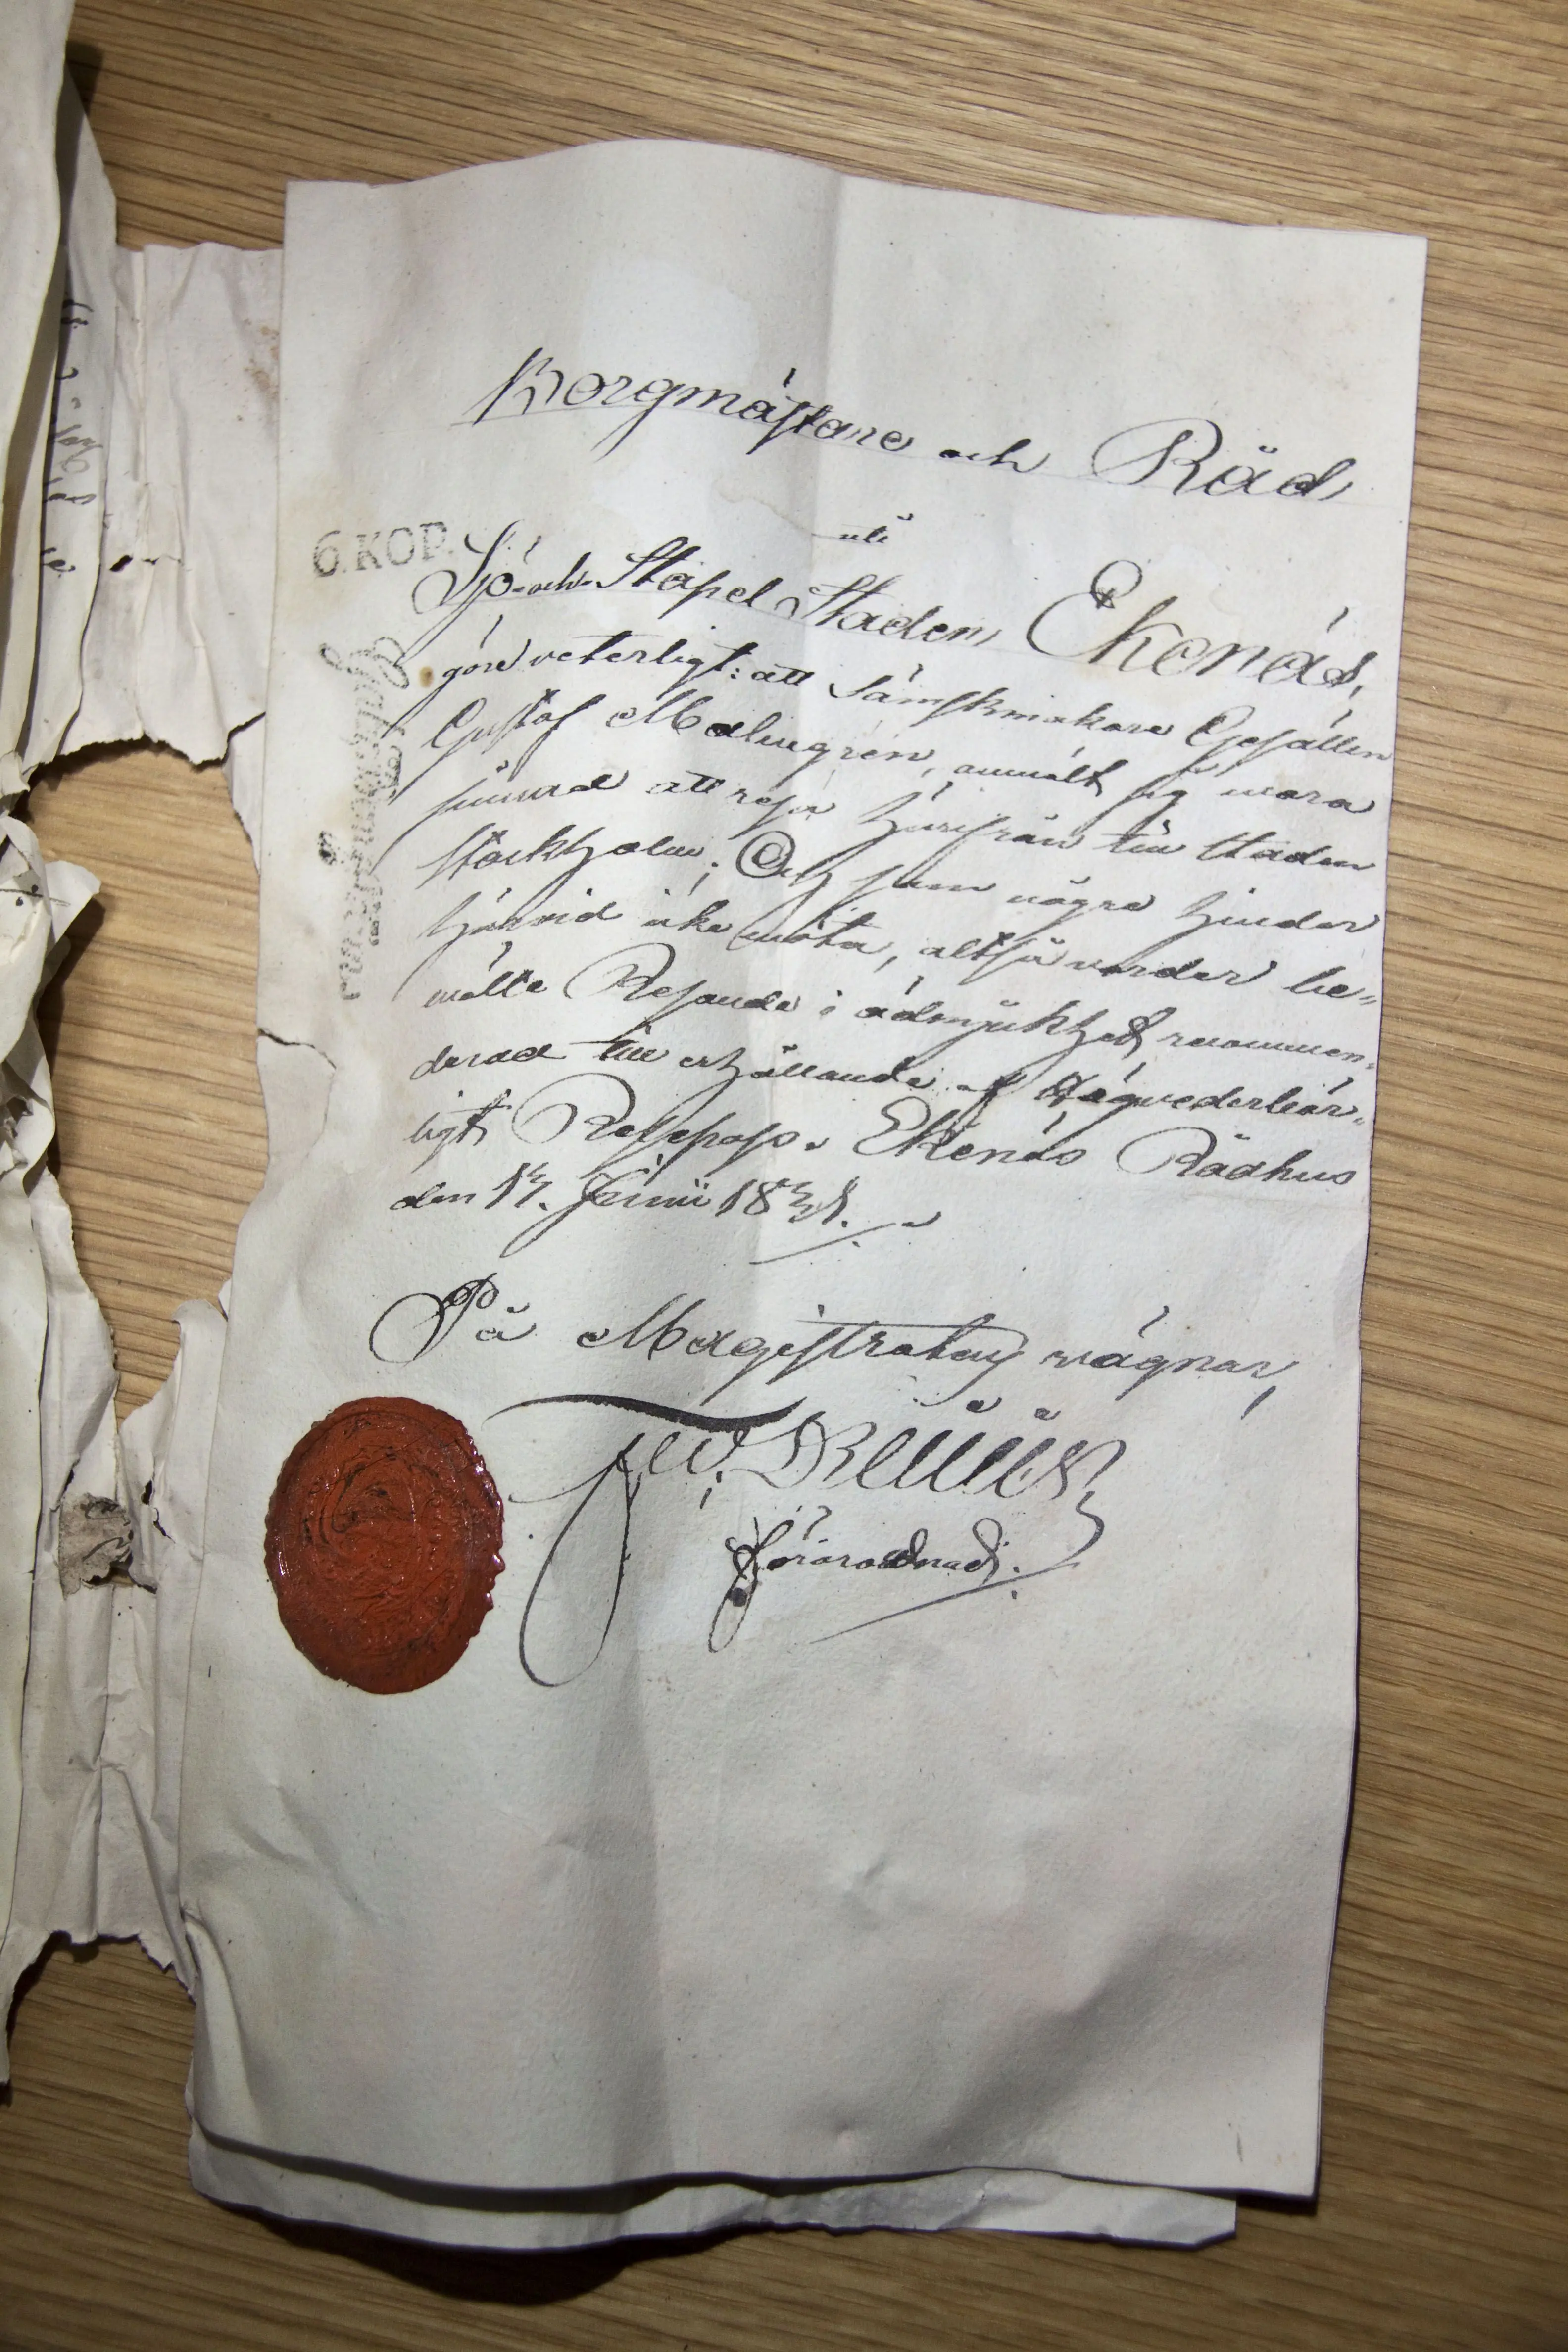 Borgmästare och Råd
uti
6. KOP.
Sjö- och Stapel Staden Ekenäs,
göre veterligt: att Sämskmakare Gesällen
Gustaf Malmgrén, anmält sig wara
sinnad att resa härifrån till Staden
Stockholm; Och som någre hinder
härvid icke möta, altså varder be„
mälte Resande i ödmjukhet recommen„
derad till erhållande af Högvederbör„
ligt Respass. Ekenäs Rådhus
den 17. Junii 1831.
På Magistratens vägnar,
Förordnad.